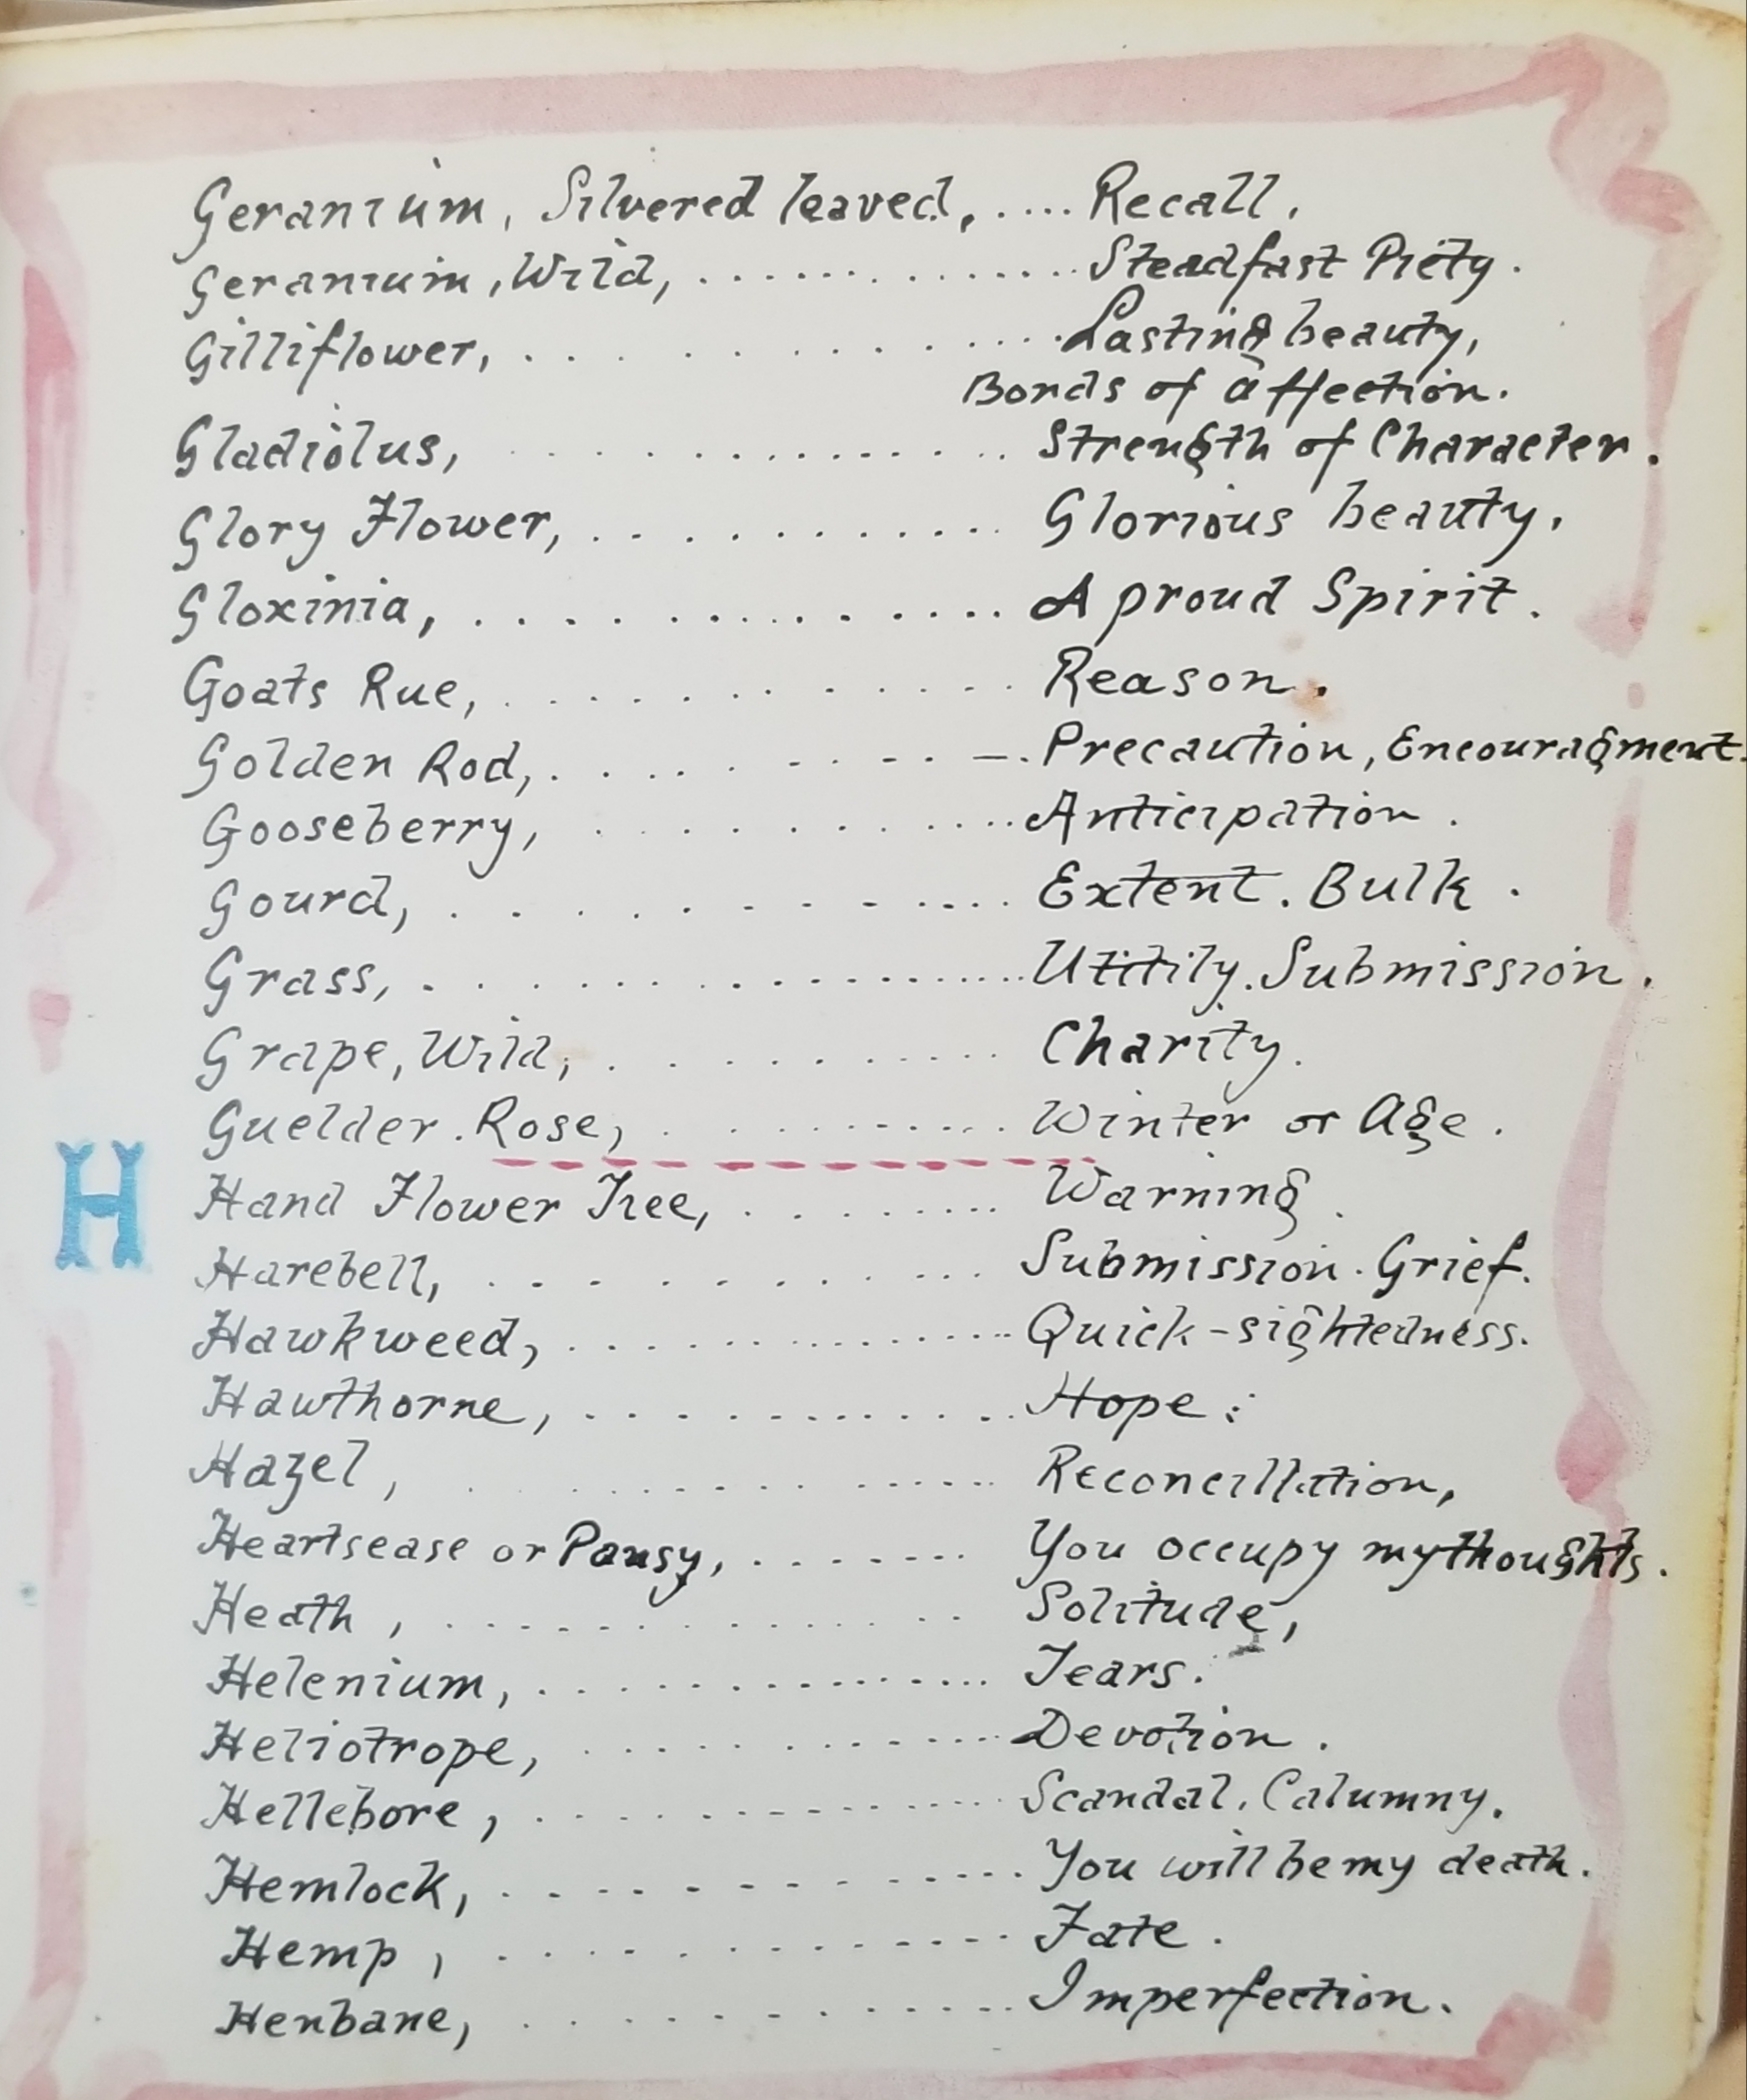 Geranium, Silvered leaved, .... Recall.
Geranium, Wild, ............. Steadfast Piety.
Gilliflower, ............. Lasting beauty,
Bonds of affection.
Gladiolus, ............. Strength of Character.
Glory Flower, ............ Glorious beauty.
Gloxinia, ............. A proud Spirit.
Goats Rue, ............ Reason.
Golden Rod, .......... —. Precaution, Encouragment.
Gooseberry, ............. Anticipation.
Gourd, ............. Extent. Bulk.
Grass, ................. Utitily. Submission.
Grape, Wild, .......... Charity.
Guelder. Rose, .......... Winter or Age.
H
Hand Flower Tree, ......... Warning.
Harebell, ............ Submission. Grief.
Hawkweed, .............. Quick-sightedness.
Hawthorne, ............. Hope:
Hazel, ............ Reconcillation,
Heartsease or Pansy, ....... You occupy my thoughts.
Heath, ............. Solitude,
Helenium, .............. Tears.
Heliotrope, ............. Devotion.
Hellebore, .............. Scandal. Calumny.
Hemlock, .............. You will be my death.
Hemp, ............. Fate.
Henbane, ............ Imperfection.